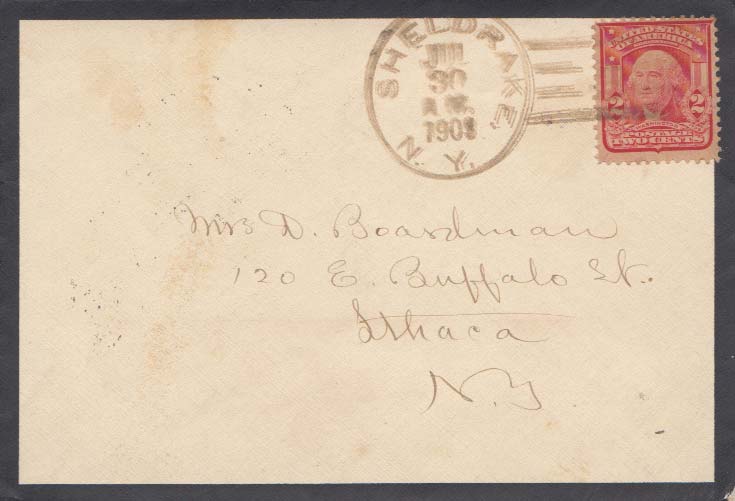 SHELDRAKE,
30
A.M.
N. Y.
UNITED STATES
OF AMERICA
2 2
WASHINGTON
POSTAGE
TWO CENTS
Mrs D. Boardman
120 E. Buffalo St.
Ithaca
N.Y.